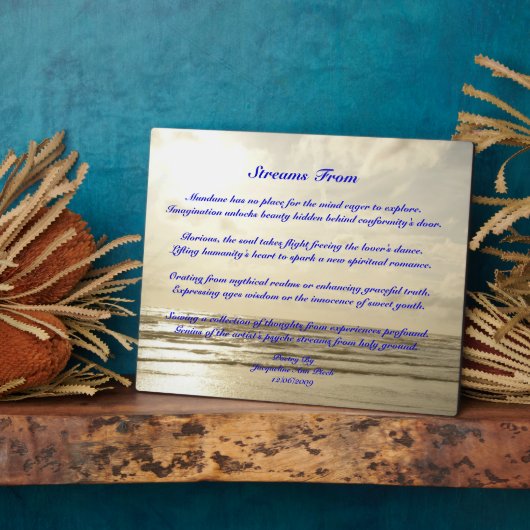 Streams From
Mundane has no place for the mind eager to explore.
Imagination unlocks beauty hidden behind conformity's door.
Glorious, the soul takes flight freeing the lover's dance.
Lifting humanity's heart to spark a new spiritual romance.
Orating from mythical realms or enhancing graceful truth.
Expressing ages wisdom or the innocence of sweet youth.
Sowing a collection of thoughts from experiences profound.
Genius of the artist's psyche streams from holy ground.
Poetry By
Jacqueline Ann Plech
12/06/2009